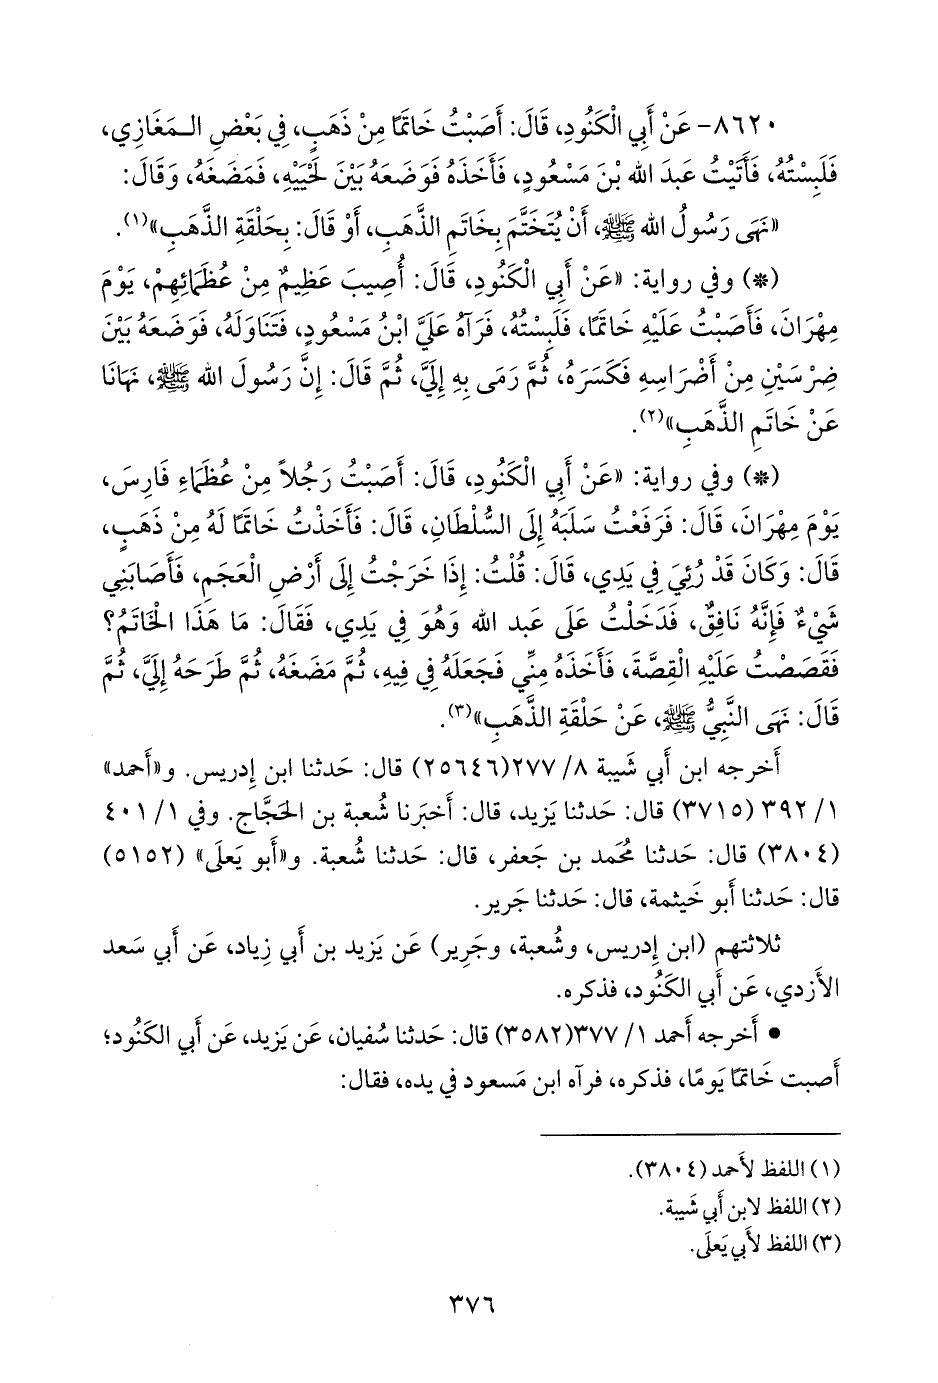 ٨٦٢٠- عَنْ أَبِي الْكَنُودِ، قَالَ: أَصَبْتُ خَاتَمًا مِنْ ذَهَبٍ، فِي بَعْضِ الـمَغَازِي،
فَلَبِسْتُهُ، فَأَتَيْتُ عَبدَ الله بْنَ مَسْعُودٍ، فَأَخَذَهُ فَوَضَعَهُ بَيْنَ لَحْيَيْهِ، فَمَضَغَهُ، وَقَالَ:
«نَهَى رَسُولُ الله ﷺ، أَنْ يُتَخَتَّمَ بِخَاتَمِ الذَّهَبِ، أَوْ قَالَ: بِحَلْقَةِ الذَّهَبِ»(١).
(*) وفي رواية: «عَنْ أَبِي الْكَنُودِ، قَالَ: أُصِيبَ عَظِيمٌ مِنْ عُظَمَائِهِمْ، يَوْمَ
مِهْرَانَ، فَأَصَبْتُ عَلَيْهِ خَاتَمًا، فَلَبِسْتُهُ، فَرَآهُ عَلَيَّ ابْنُ مَسْعُودٍ، فَتَنَاوَلَهُ، فَوَضَعَهُ بَيْنَ
ضِرْسَيْنِ مِنْ أَضْرَاسِهِ فَكَسَرَهُ، ثُمَّ رَمَى بِهِ إِلَيَّ، ثُمَّ قَالَ: إِنَّ رَسُولَ الله ﷺ، نَهَانَا
عَنْ خَاتَمِ الذَّهَبِ»(٢).
(*) وفي رواية: «عَنْ أَبِي الْكَنُودِ، قَالَ: أَصَبْتُ رَجُلاً مِنْ عُظَمَاءِ فَارِسَ،
يَوْمَ مِهْرَانَ، قَالَ: فَرَفَعْتُ سَلَبَهُ إِلَى السُّلْطَانِ، قَالَ: فَأَخَذْتُ خَاتَمًا لَهُ مِنْ ذَهَبٍ،
قَالَ: وَكَانَ قَدْ رُئِيَ فِي يَدِي، قَالَ: قُلْتُ: إِذَا خَرَجْتُ إِلَى أَرْضِ الْعَجَمِ، فَأَصَابَنِي
شَيْءٌ فَإِنَّهُ نَافِقٌ، فَدَخَلْتُ عَلَى عَبد الله وَهُوَ فِي يَدِي، فَقَالَ: مَا هَذَا الْخَاتَمُ؟
فَقَصَصْتُ عَلَيْهِ الْقِصَّةَ، فَأَخَذَهُ مِنِّي فَجَعَلَهُ فِي فِيهِ، ثُمَّ مَضَغَهُ، ثُمَّ طَرَحَهُ إِلَيَّ، ثُمَّ
قَالَ: نَهَى النَّبِيُّ ﷺ، عَنْ حَلْقَةِ الذَّهَبِ»(٣).
أَخرجه ابن أَبي شَيبة ٨/ ٢٧٧(٢٥٦٤٦) قال: حَدثنا ابن إِدريس. و«أَحمد»
١/ ٣٩٢ (٣٧١٥) قال: حَدثنا يَزيد، قال: أَخبَرنا شُعبة بن الحَجَّاج. وفي ١/ ٤٠١
(٣٨٠٤) قال: حَدثنا مُحمد بن جَعفر، قال: حَدثنا شُعبة. و«أَبو يَعلَى» (٥١٥٢)
قال: حَدثنا أَبو خَيثمة، قال: حَدثنا جَرير.
ثلاثتهم (ابن إِدريس، وشُعبة، وجَرير) عَن يَزيد بن أَبي زياد، عَن أَبي سَعد
الأَزدي، عَن أَبي الكَنُود، فذكره.
• أَخرجه أَحمد ١/ ٣٧٧(٣٥٨٢) قال: حَدثنا سُفيان، عَن يَزيد، عَن أَبي الكَنُود؛
أَصبت خَاتَمًا يَومًا، فذكره، فرآه ابن مَسعود في يده، فقال:
(١) اللفظ لأَحمد (٣٨٠٤).
(٢) اللفظ لابن أَبي شَيبة.
(٣) اللفظ لأَبي يَعلَى.
٣٧٦